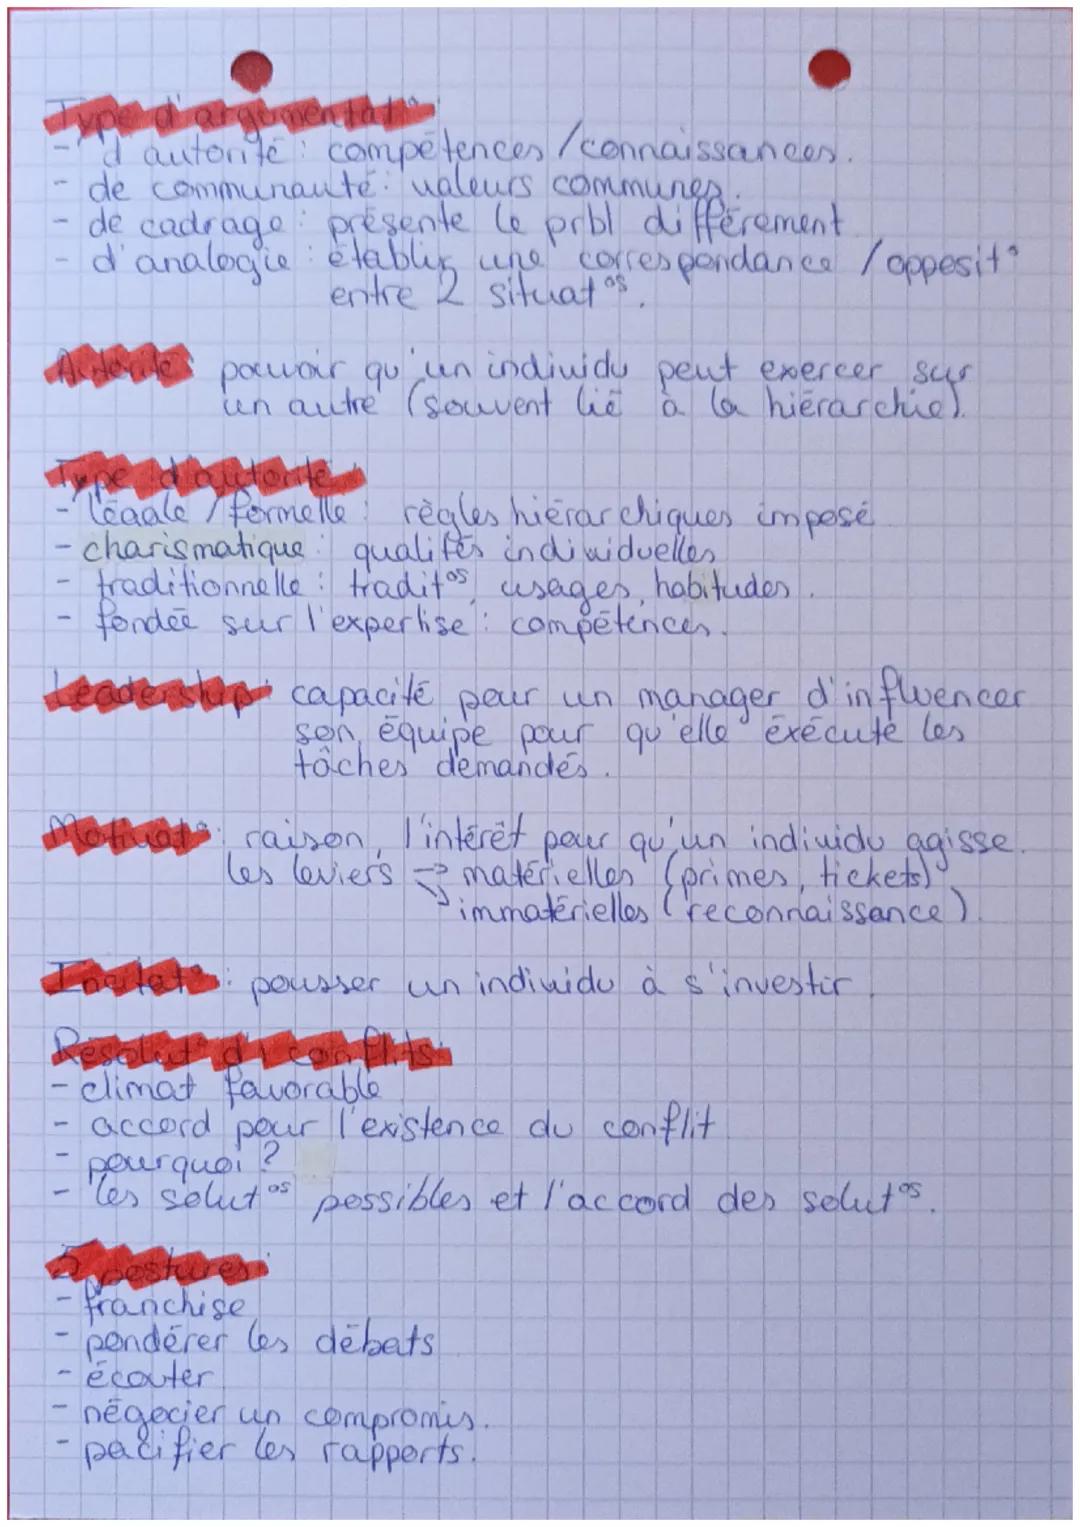 Type d'argumentat°:
- d'autorité : compétences / connaissances.
- de communauté : valeurs communes.
- de cadrage : présente le prbl différement
- d'analogie : établir une correspondance / opposit°
entre 2 situat°s.
Autorité : pouvoir qu'un individu peut exercer sur
un autre (souvent lié à la hiérarchie).
Type d'autorité :
- légale / formelle : règles hiérarchiques imposé
- charismatique : qualités individuelles
- traditionnelle : tradit°s, usages, habitudes.
- fondée sur l'expertise : compétences.
Leadership : capacité pour un manager d'influencer
son équipe pour qu'elle éxécute les
tâches demandés.
Motivat° : raison, l'intérêt pour qu'un individu agisse.
les leviers → matérielles (primes, tickets)
↘ immatérielles (reconnaissance).
Incitat° : pousser un individu à s'investir.
Résolut° de conflits :
- climat favorable
- accord pour l'existence du conflit
- pourquoi ?
- les solut°s possibles et l'accord des solut°s.
5 postures :
- franchise
- pondérer les débats
- écouter
- négocier un compromis.
- pacifier les rapports.